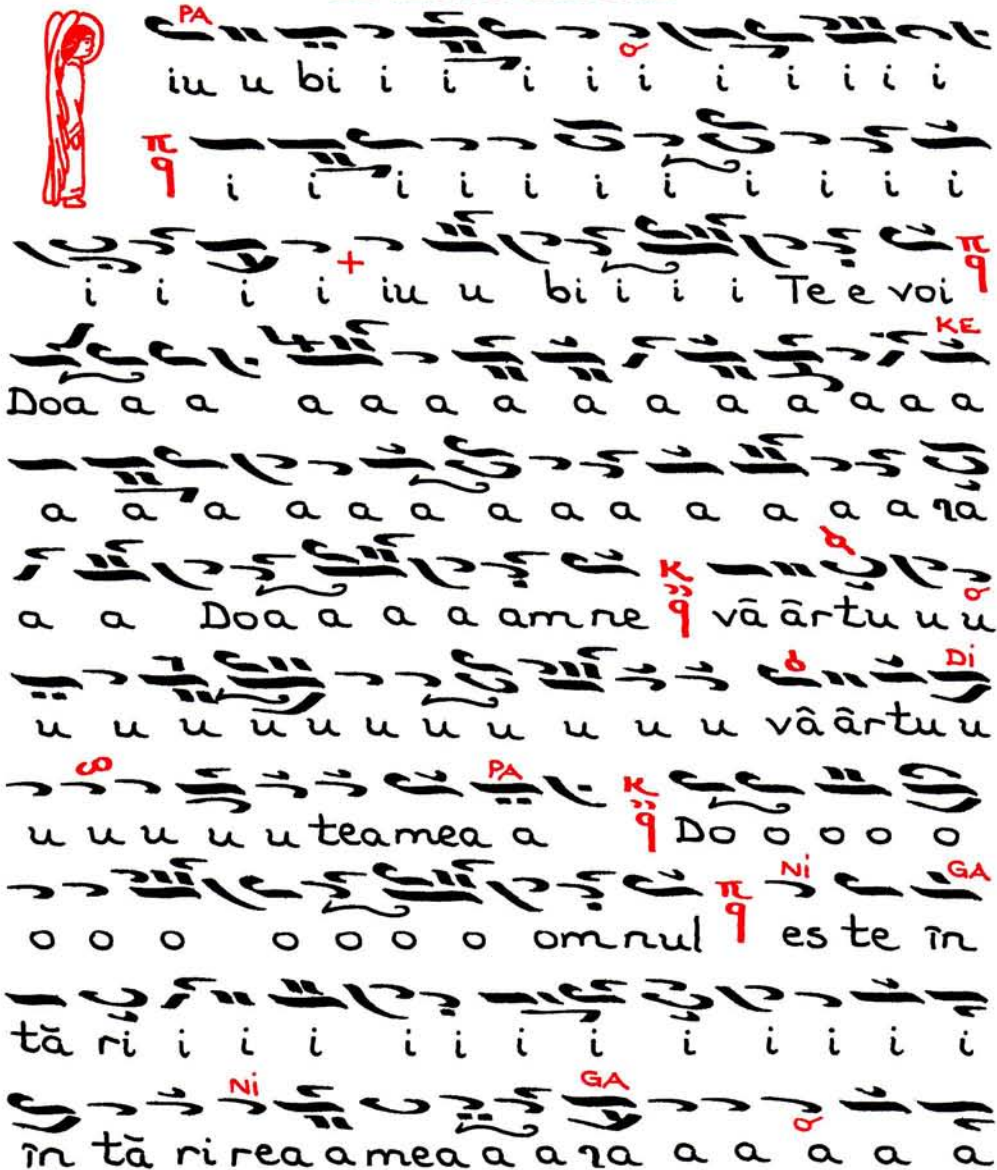 PA
iu u bi i i i i i i i i i i i
π q i i i i i i i i i i i
i i i i iu u bi i i i Te e voi π q
KE
Doa a a a a a a a a a a a a a
a a a a a a a a a a a a a ra
a a Doa a a a amne K q vâ ârtu u u
Di
u u u u u u u u u u u vâ ârtu u
PA
u u u u u teamea a K q Do o o o o
Ni GA
o o o o o o o omnul π q es te în
tă ri i i i i i i i i i i i i
Ni GA
în tă ri rea a mea a a ra a a a a a